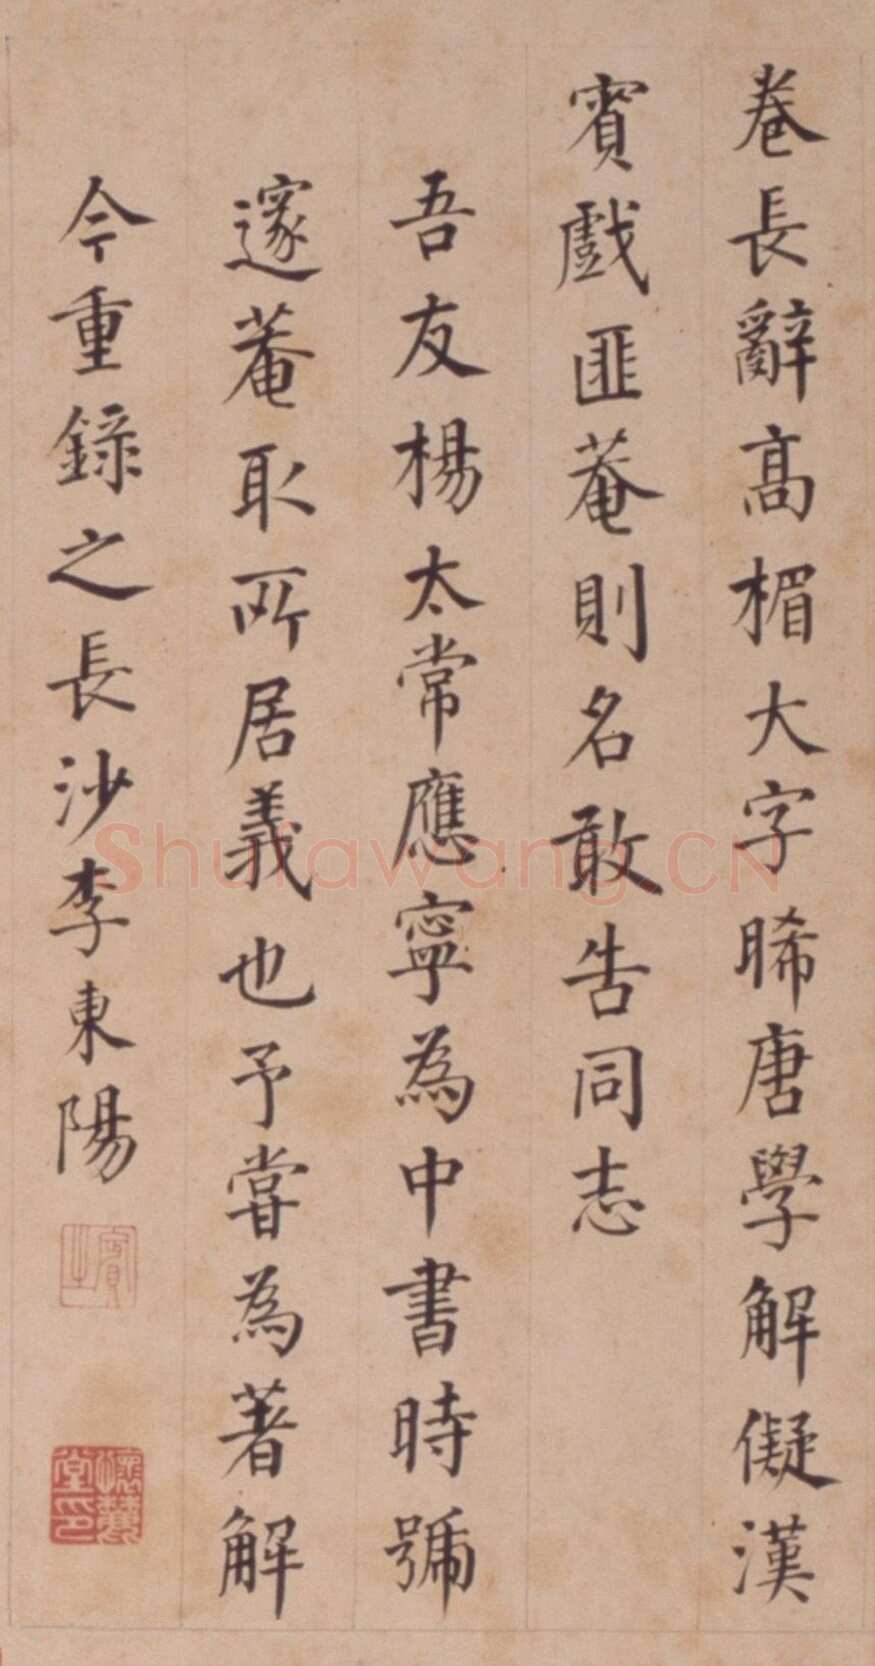 卷長辭高楣大字晞唐學解儗漢
賓戲匪菴則名敢告同志
吾友楊太常應寧為中書時號
邃菴取所居義也予嘗為著解
今重錄之長沙李東陽
賓之
懷麓堂印
Shufawang.CN